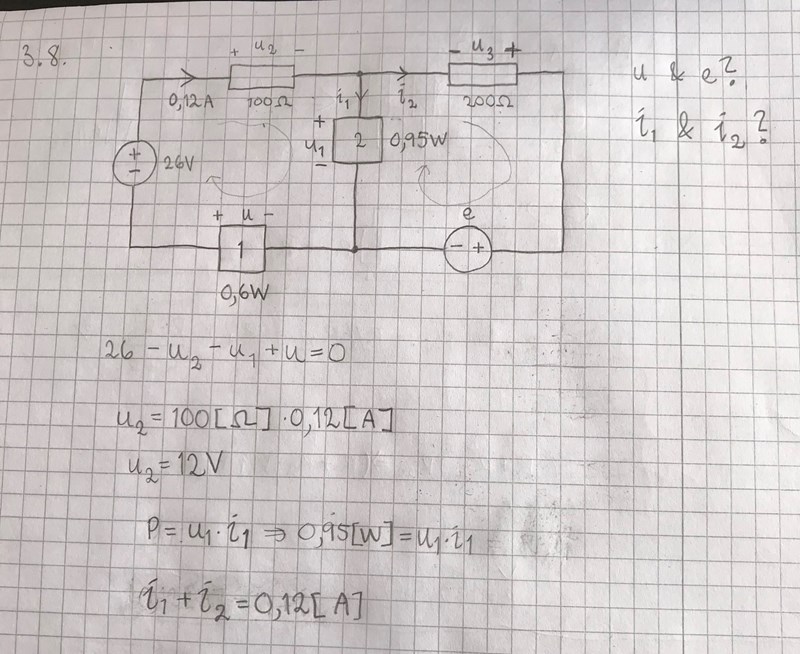 3.8.
+ u₂ -
- u₃ +
u & e?
0,12A
100Ω
i₁
i₂
200Ω
i₁ & i₂?
+
u₁
-
2
0,95W
+
-
26V
+ u -
e
1
- +
0,6W
26 - u₂ - u₁ + u = 0
u₂ = 100[Ω] · 0,12[A]
u₂ = 12V
P = u₁ · i₁ ⇒ 0,95[W] = u₁ · i₁
i₁ + i₂ = 0,12[A]